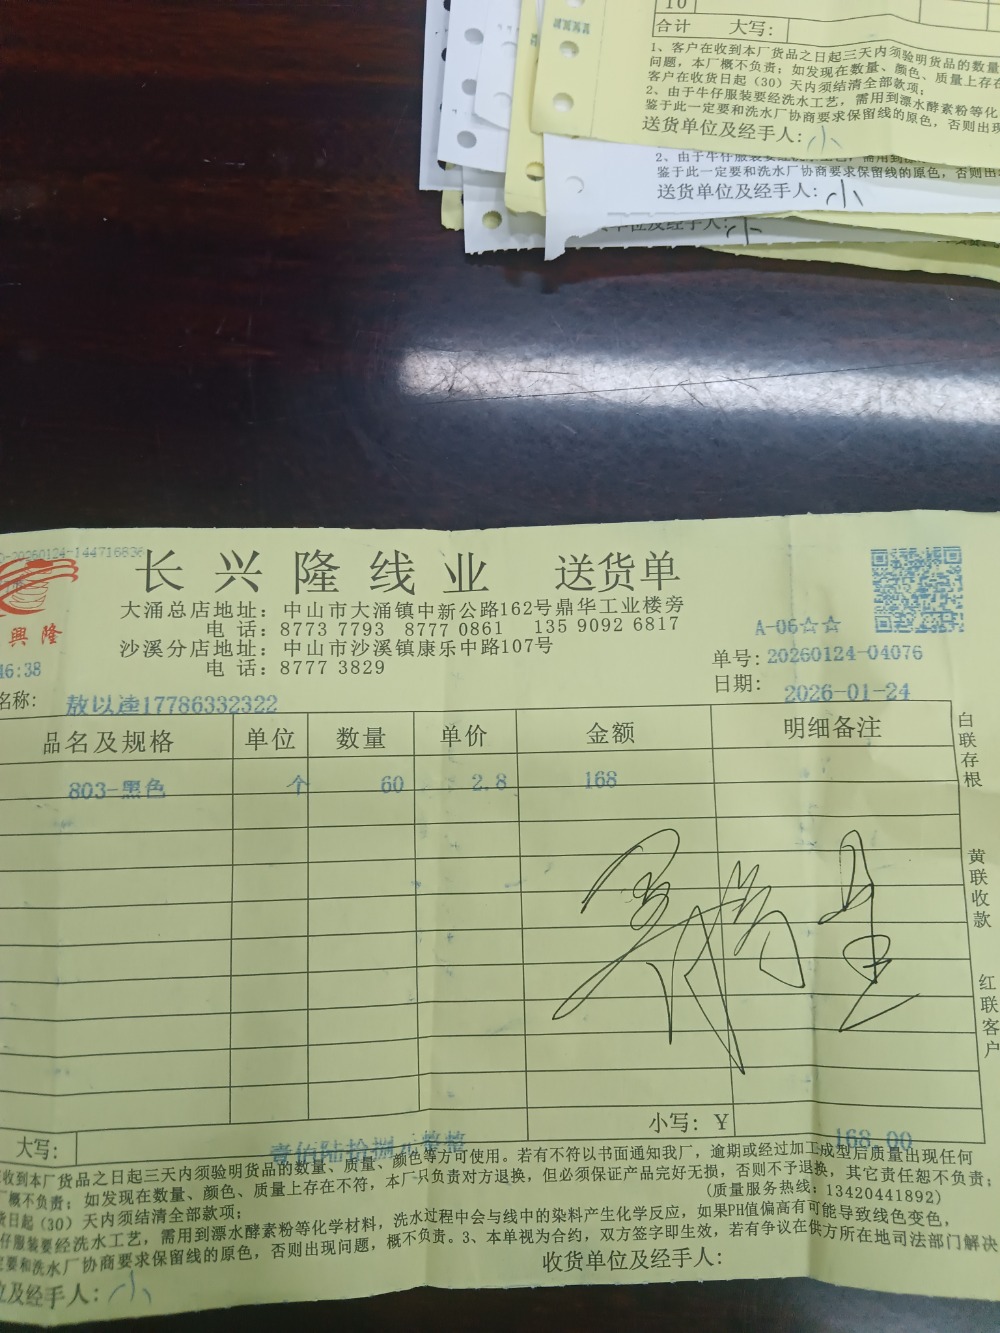 10
合计 大写:
1、客户在收到本厂货品之日起三天内须验明货品的数量
问题，本厂概不负责；如发现在数量、颜色、质量上存在
客户在收货日起（30）天内须结清全部款项；
2、由于牛仔服装要经洗水工艺，需用到漂水酵素粉等化
鉴于此一定要和洗水厂协商要求保留线的原色，否则出现
送货单位及经手人: 小
鉴于此一定要和洗水厂协商要求保留线的原色，否则出
送货单位及经手人: 小
单位及经手人: 小
20260124-144716836
长兴隆线业 送货单
大涌总店地址：中山市大涌镇中新公路162号鼎华工业楼旁
电 话：8773 7793 8777 0861 135 9092 6817
沙溪分店地址：中山市沙溪镇康乐中路107号
电 话：8777 3829
興隆
A-06☆☆
46:38
单号: 20260124-04076
日期: 2026-01-24
名称: 敖以逵17786332322
品名及规格 单位 数量 单价 金额 明细备注
803-黑色 个 60 2.8 168
白联存根
黄联收款
红联客户
大写: 壹佰陆拾捌元整 小写: ¥ 168.00
收到本厂货品之日起三天内须验明货品的数量、质量、颜色等方可使用。若有不符以书面通知我厂，逾期或经过加工成型后质量出现任何
概不负责；如发现在数量、颜色、质量上存在不符，本厂只负责对方退换，但必须保证产品完好无损，否则不予退换，其它责任恕不负责；
货日起（30）天内须结清全部款项； (质量服务热线：13420441892)
仔服装要经洗水工艺，需用到漂水酵素粉等化学材料，洗水过程中会与线中的染料产生化学反应，如果PH值偏高有可能导致线色变色，
定要和洗水厂协商要求保留线的原色，否则出现问题，概不负责。3、本单视为合约，双方签字即生效，若有争议在供方所在地司法部门解决
位及经手人: 小 收货单位及经手人: